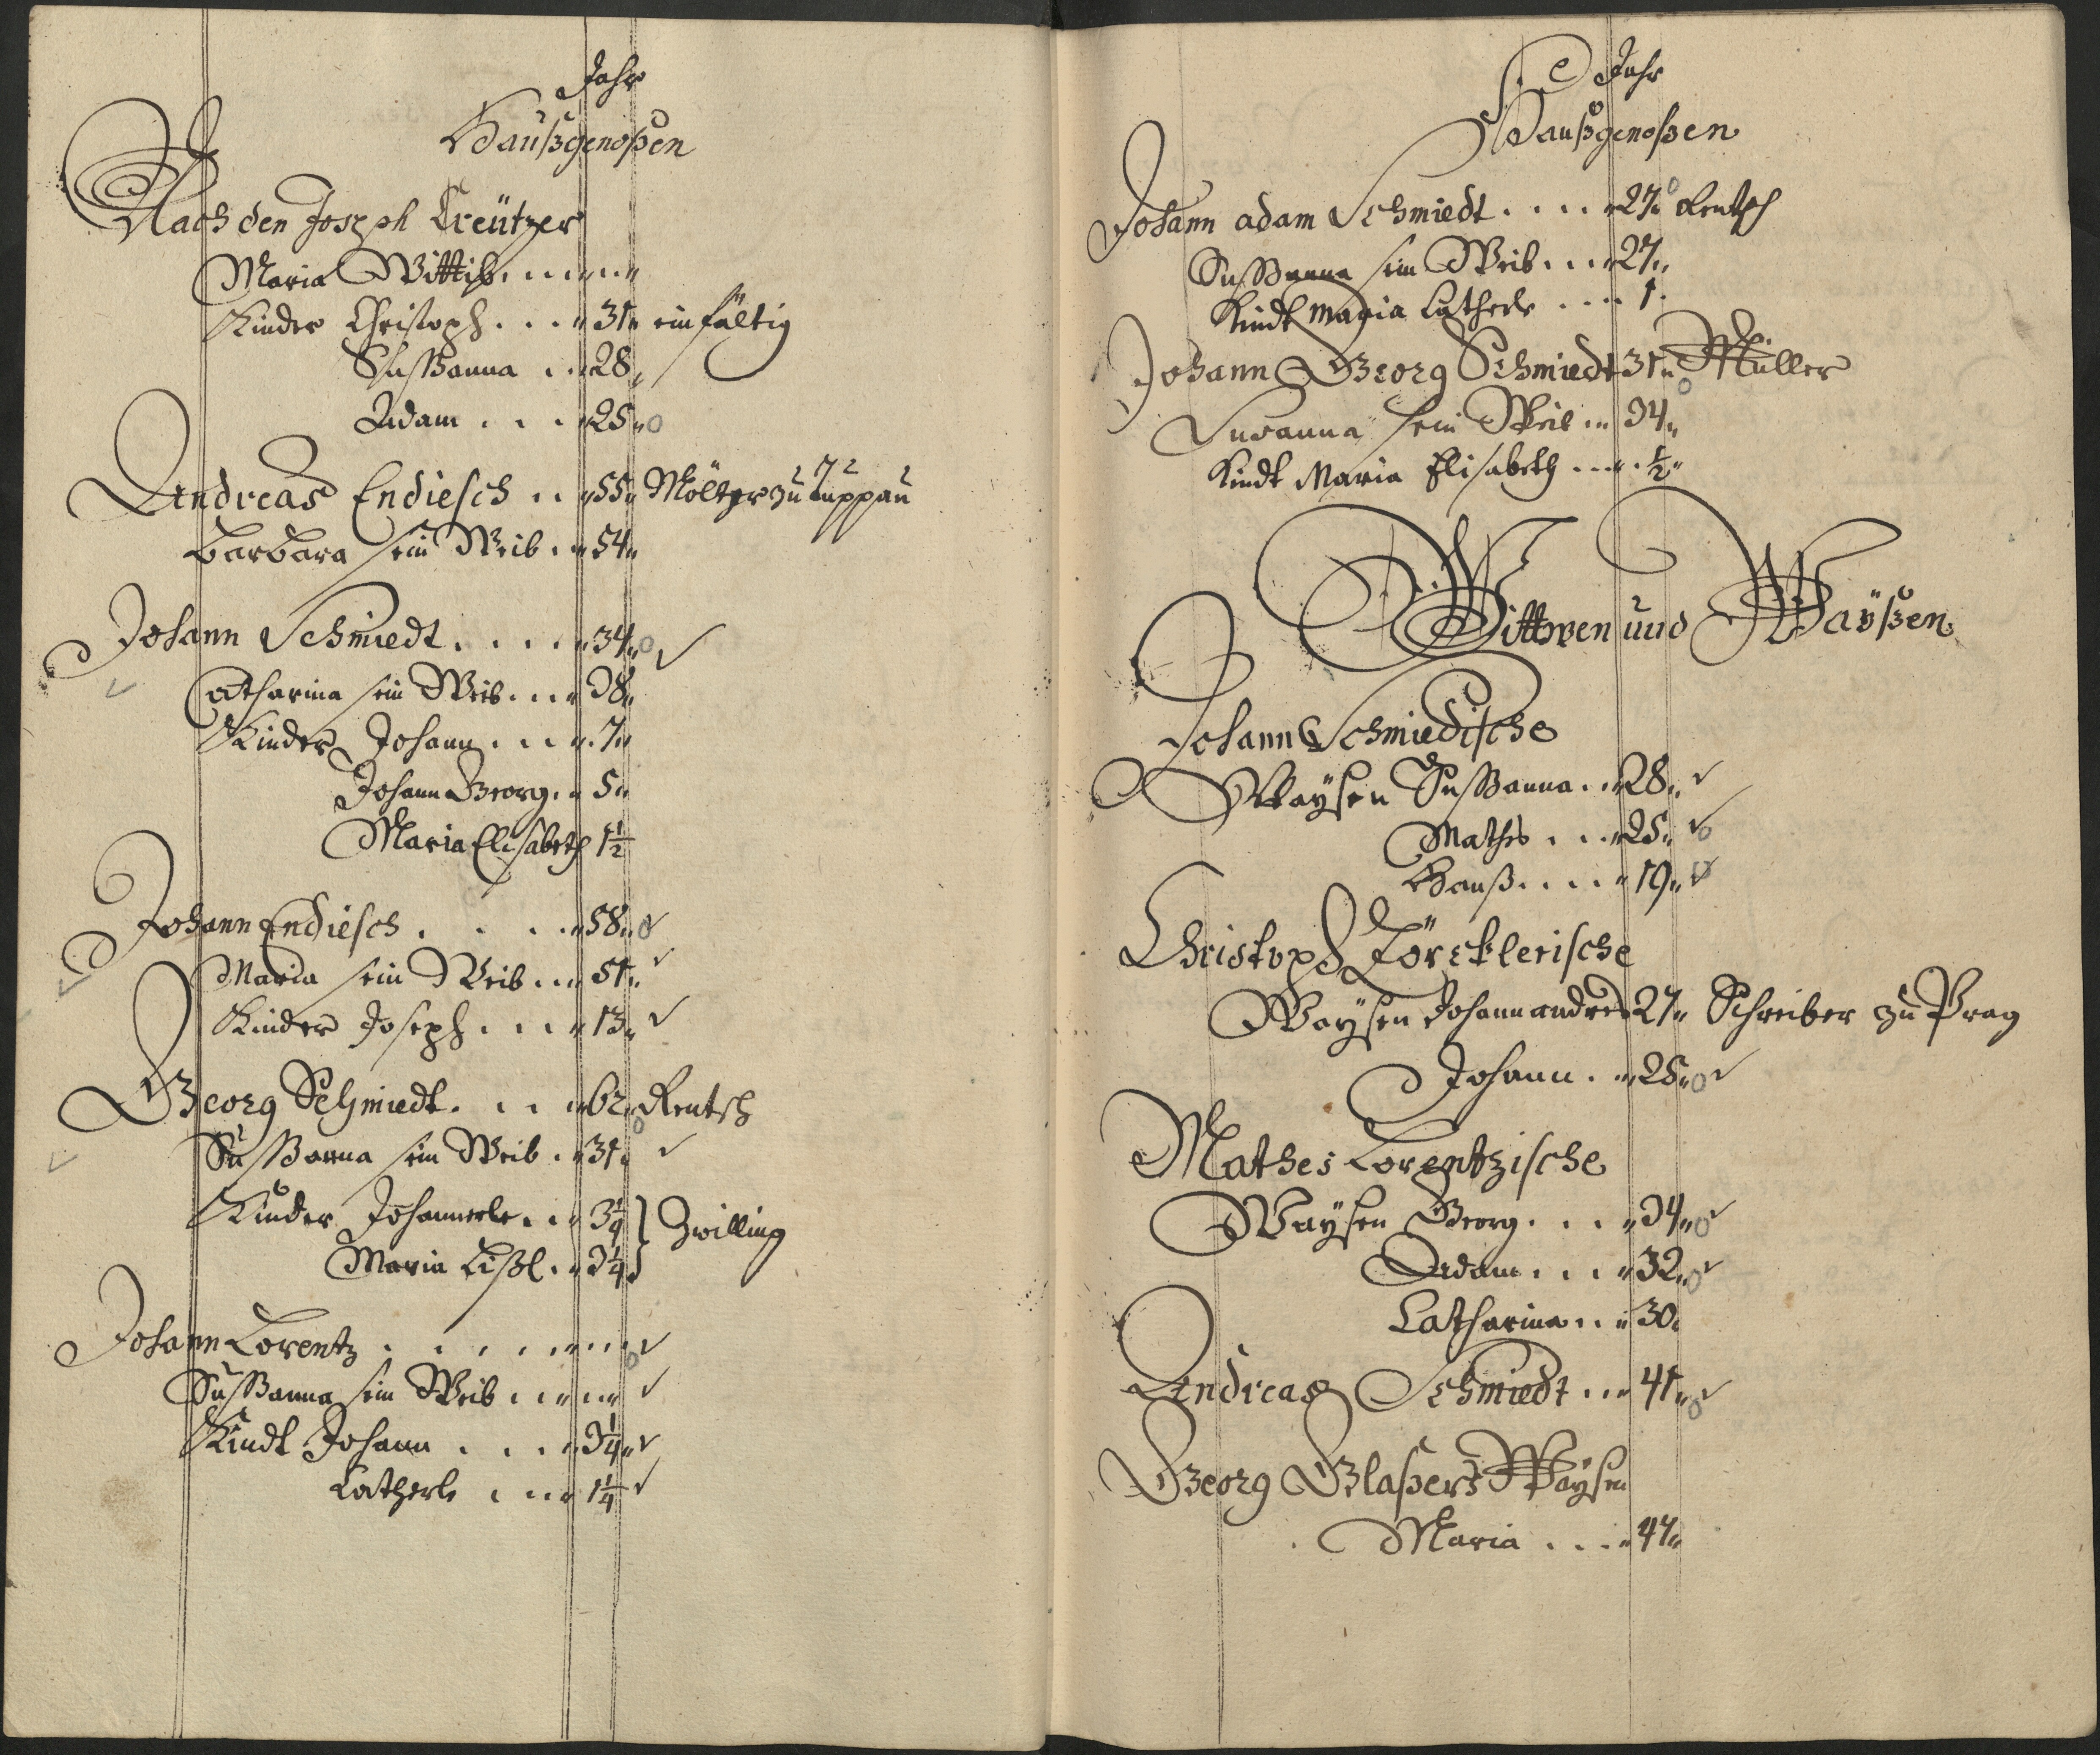 Jahr
Haußgenoßen
Nach den Joseph Creützer
Maria Wittib
Kinder Christoph . . . 31 einfältig
Sussanna . . 28
Adam . . . 25
Andreas Endiesch . . 55 Möltzer zu Luppau
Barbara sein Weib . 54
Johann Schmiedt . . . . 34
Catharina sein Weib . . . 38
Kinder Johann . . . 7
Johann Georg . 5
Maria Elisabeth 1½
Johann Endiesch . . . . 58
Maria sein Weib . . 51
Kinder Joseph . . . 13
Georg Schmiedt . . . 62 Rentsch
Sussanna sein Weib . 31
Kinder Johannerle . . 3¼ } Zwilling
Maria Lißl . 3¼
Johann Lorentz . . . . .
Sussanna sein Weib . . .
Kindt Johann . . . 3¼
Catherle . . . 1¼
Jahr
Haußgenoßen
Johann adam Schmiedt . . . . 27 Rentsch
Sussanna sein Weib . . . 27
Kindt Maria Catherle . . . . 1
Johann Georg Schmiedt 31 Müller
Susanna sein Weib . . 34
Kindt Maria Elisabeth . . . . ½
Wittwen und Wayßen
Johann Schmiedische
Waysen Sussanna . . 28
Mathes . . . 25
Hanß . . . . 19
Christoph Törcklerische
Waysen Johann andres 27 Schreiber zu Prag
Johann . . 25
Mathes Lorentzische
Waysen Georg . . . 34
Adam . . . 32
Catharina . . 30
Andreas Schmiedt . . . 41
Georg Glaßers Waysen
Maria . . . . 47